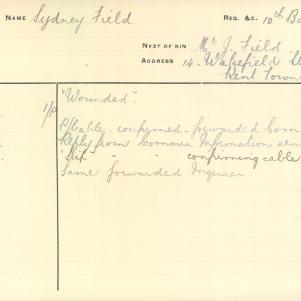 NAME Sydney Field REG. &C. 10th Ba
NEXT OF KIN Mr J. Field
ADDRESS 14. Wakefield St
Kent Town
"Wounded".
1/P P/Cable confirmed. forwarded Comm
Reply from Comma. Information sen
"Slip" " " confirming cable
Same forwarded Inquirer